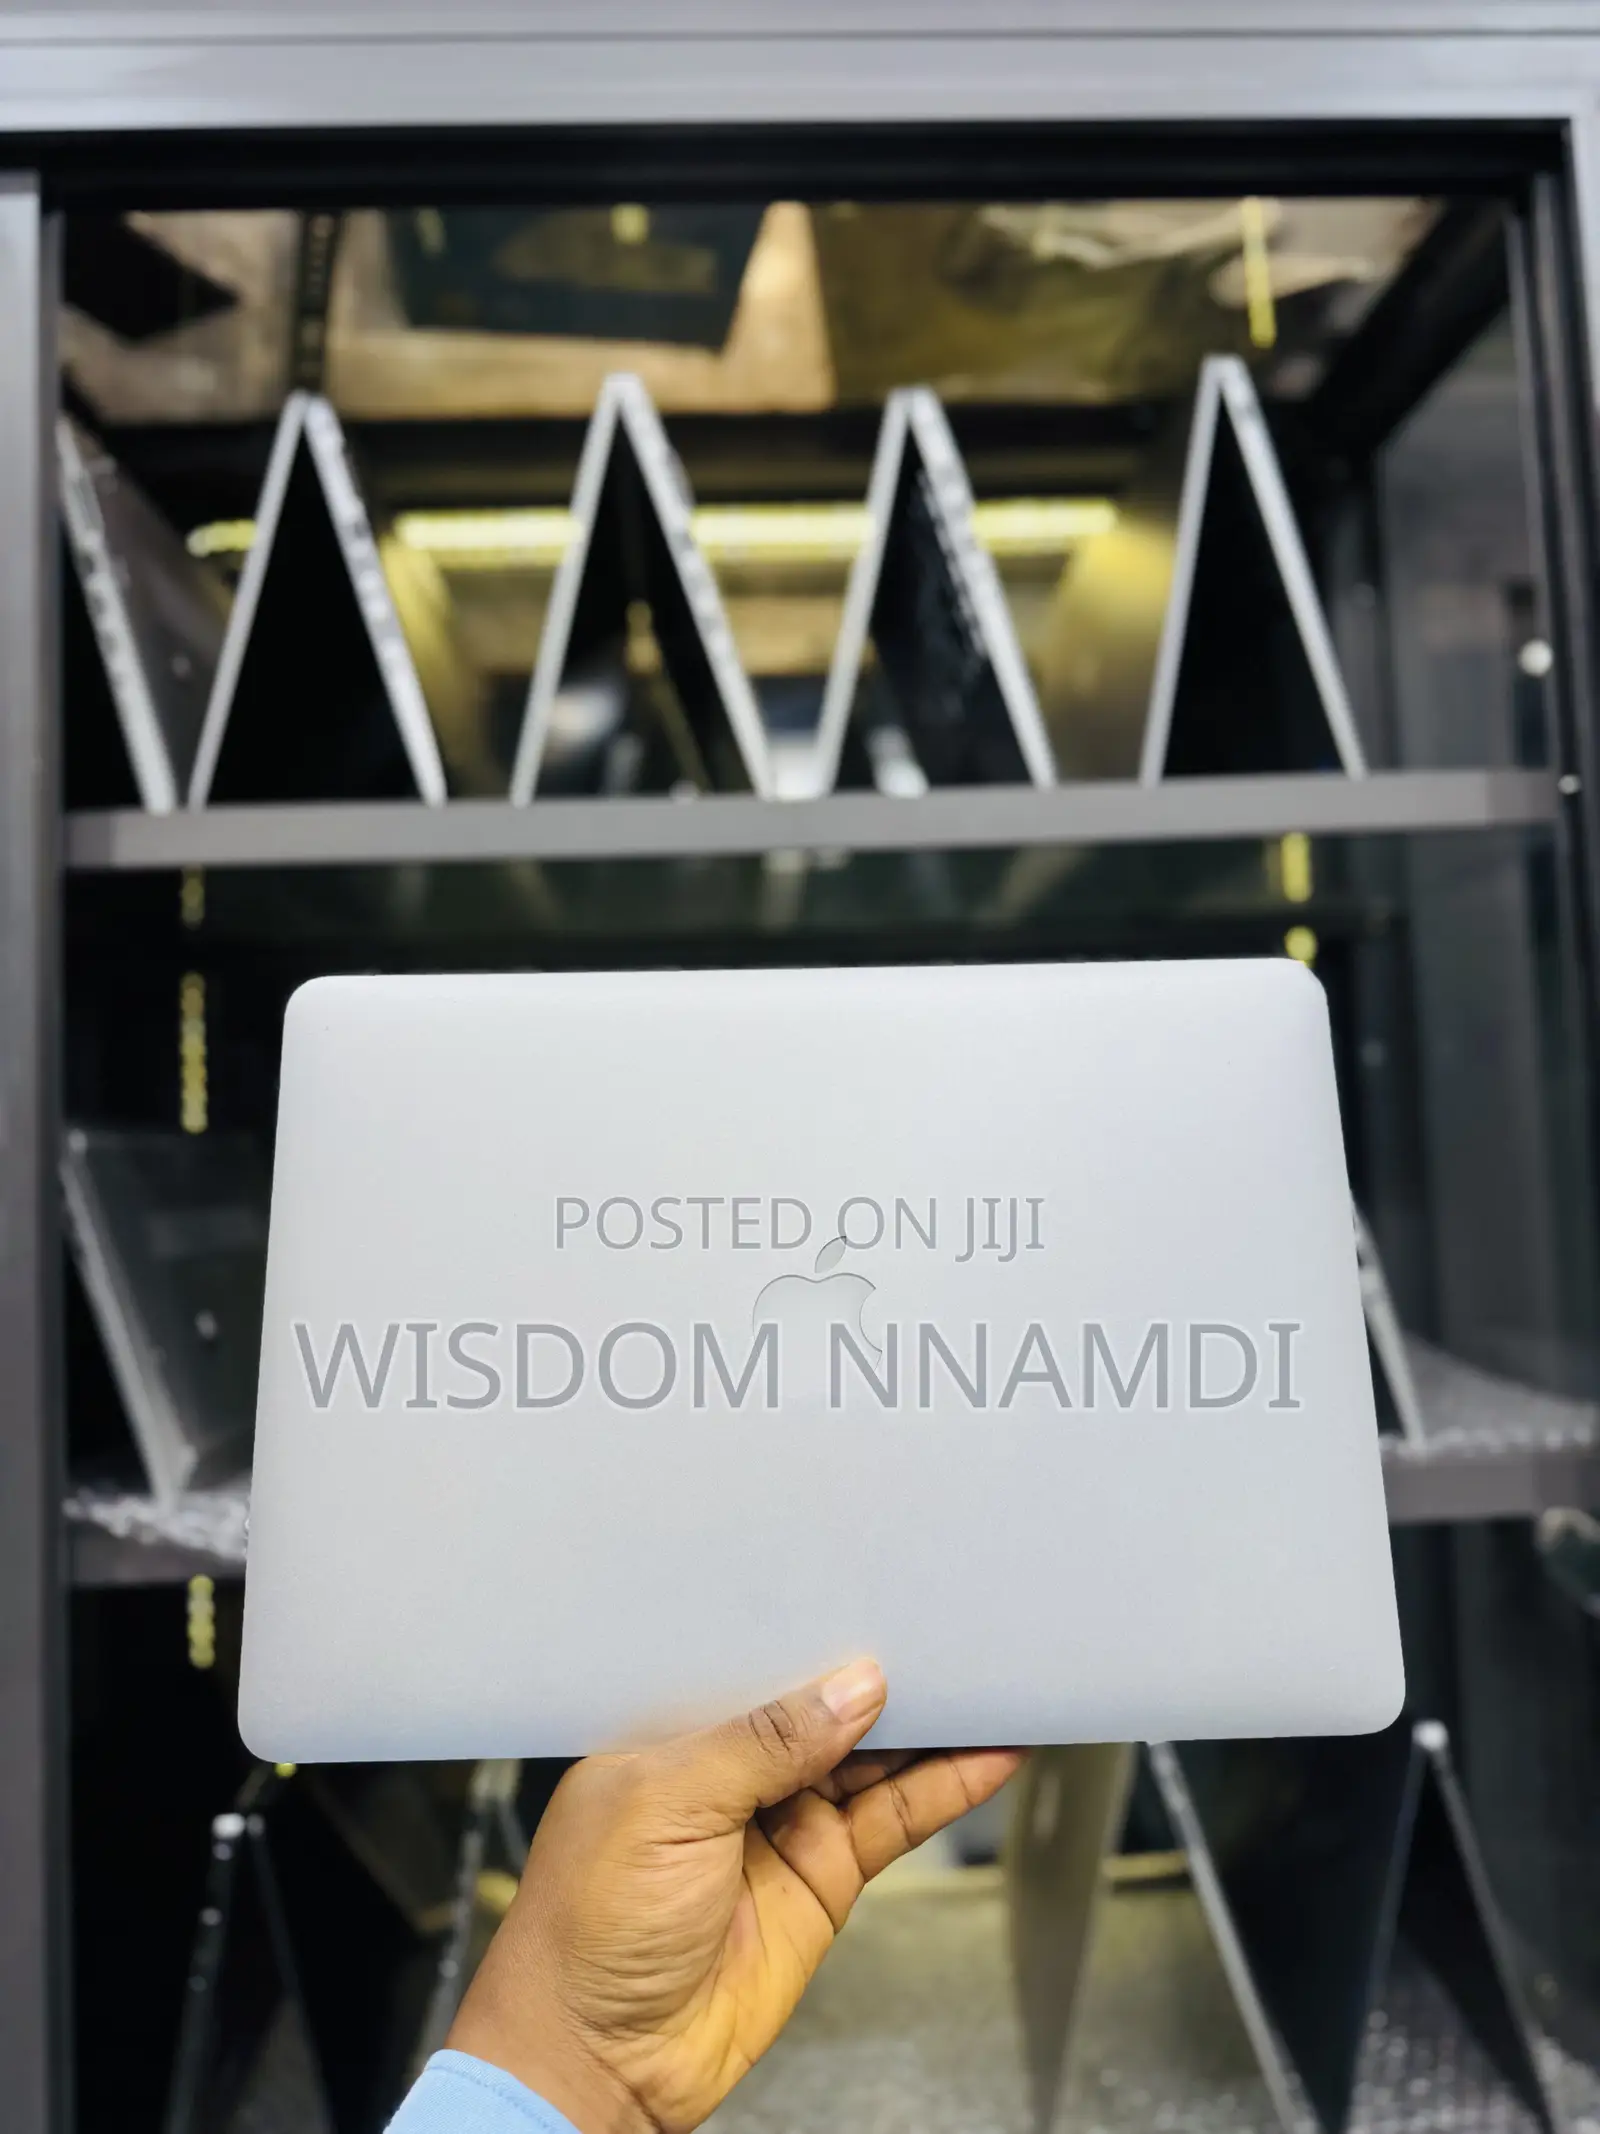 POSTED ON JIJI
WISDOM NNAMDI